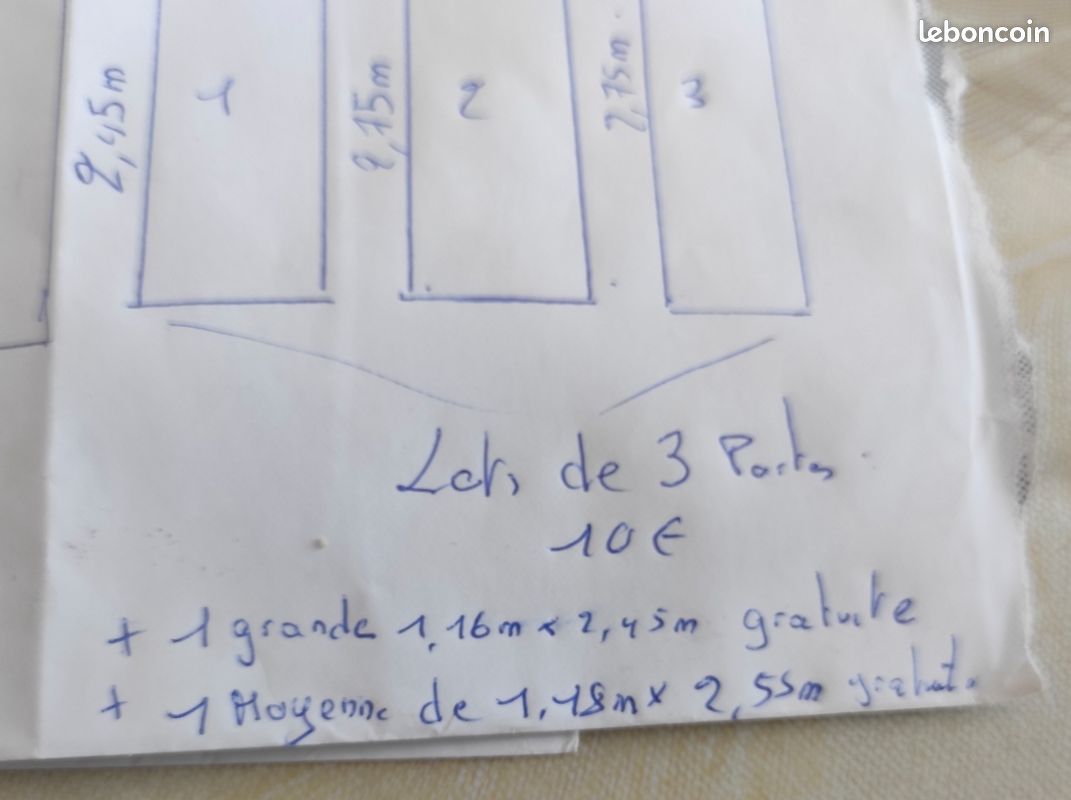 leboncoin
2,45m
1
2,75m
2
2,75m
3
Lots de 3 Portes
10€
+ 1 grande 1,16m x 2,45m gratuite
+ 1 Moyenne de 1,18m x 2,55m gratuite